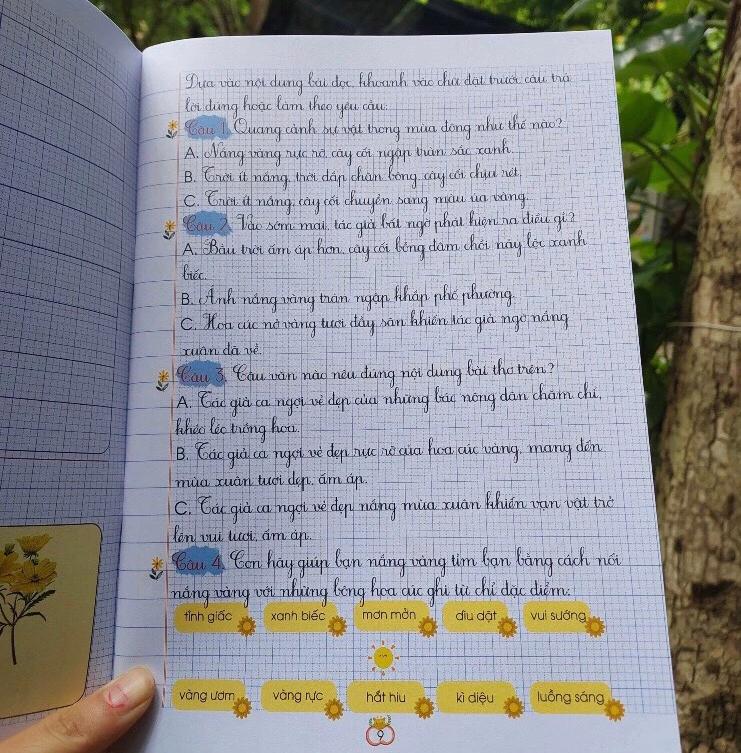 Dựa vào nội dung bài đọc, khoanh vào chữ đặt trước câu trả
lời đúng hoặc làm theo yêu cầu:
Câu 1. Quang cảnh sự vật trong mùa đông như thế nào?
A. Nắng vàng rực rỡ, cây cối ngập tràn sắc xanh.
B. Trời ít nắng, trời đắp chăn bông, cây cối chịu rét.
C. Trời ít nắng, cây cối chuyển sang màu úa vàng.
Câu 2. Vào sớm mai, tác giả bất ngờ phát hiện ra điều gì?
A. Bầu trời ấm áp hơn, cây cối bỗng đâm chồi nảy lộc xanh
biếc.
B. Ánh nắng vàng tràn ngập khắp phố phường.
C. Hoa cúc nở vàng tươi đầy sân khiến tác giả ngỡ nắng
xuân đã về.
Câu 3. Câu văn nào nêu đúng nội dung bài thơ trên?
A. Tác giả ca ngợi vẻ đẹp của những bác nông dân chăm chỉ,
khéo léc trồng hoa.
B. Tác giả ca ngợi vẻ đẹp rực rỡ của hoa cúc vàng, mang đến
mùa xuân tươi đẹp, ấm áp.
C. Tác giả ca ngợi vẻ đẹp nắng mùa xuân khiến vạn vật trở
lên vui tươi, ấm áp.
Câu 4. Con hãy giúp bạn nắng vàng tìm bạn bằng cách nối
nắng vàng với những bông hoa cúc ghi từ chỉ đặc điểm:
tỉnh giấc xanh biếc mơn mởn dìu dặt vui sướng
vàng ươm vàng rực hắt hiu kì diệu luồng sáng
9